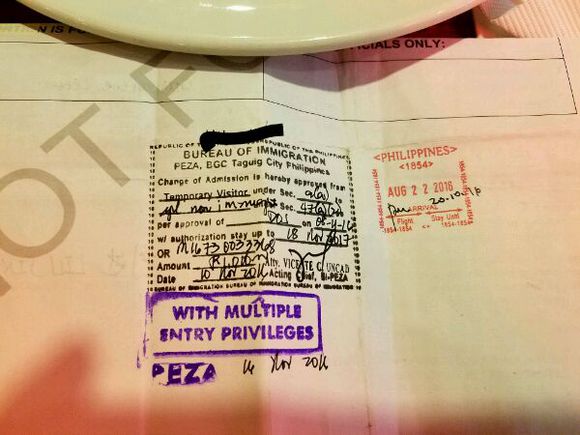 N IS F
ICIALS ONLY:
NOT FO
REPUBLIC OF THE REPUBLIC OF THE PHILIPPINES
BUREAU OF IMMIGRATION
PEZA, BGC Taguig City Philippines
Change of Admission is hereby approved from
Temporary Visitor under Sec. 9(a) to
Sec. 47(a)(2)
per approval of DOJ on
w/ authorization stay up to 18 Nov 2017
OR
Amount
Atty. VICENTE C. UNCAD
Date 10 Nov 2016 Acting Chief, BI-PEZA
BUREAU OF IMMIGRATION BUREAU OF IMMIGRATION BUREAU OF IMMIGRATION
WITH MULTIPLE
ENTRY PRIVILEGES
PEZA 14 Nov 2016
<PHILIPPINES>
<1854>
AUG 22 2016
ARRIVAL
Flight Stay Until
1854-1854 1854-1854